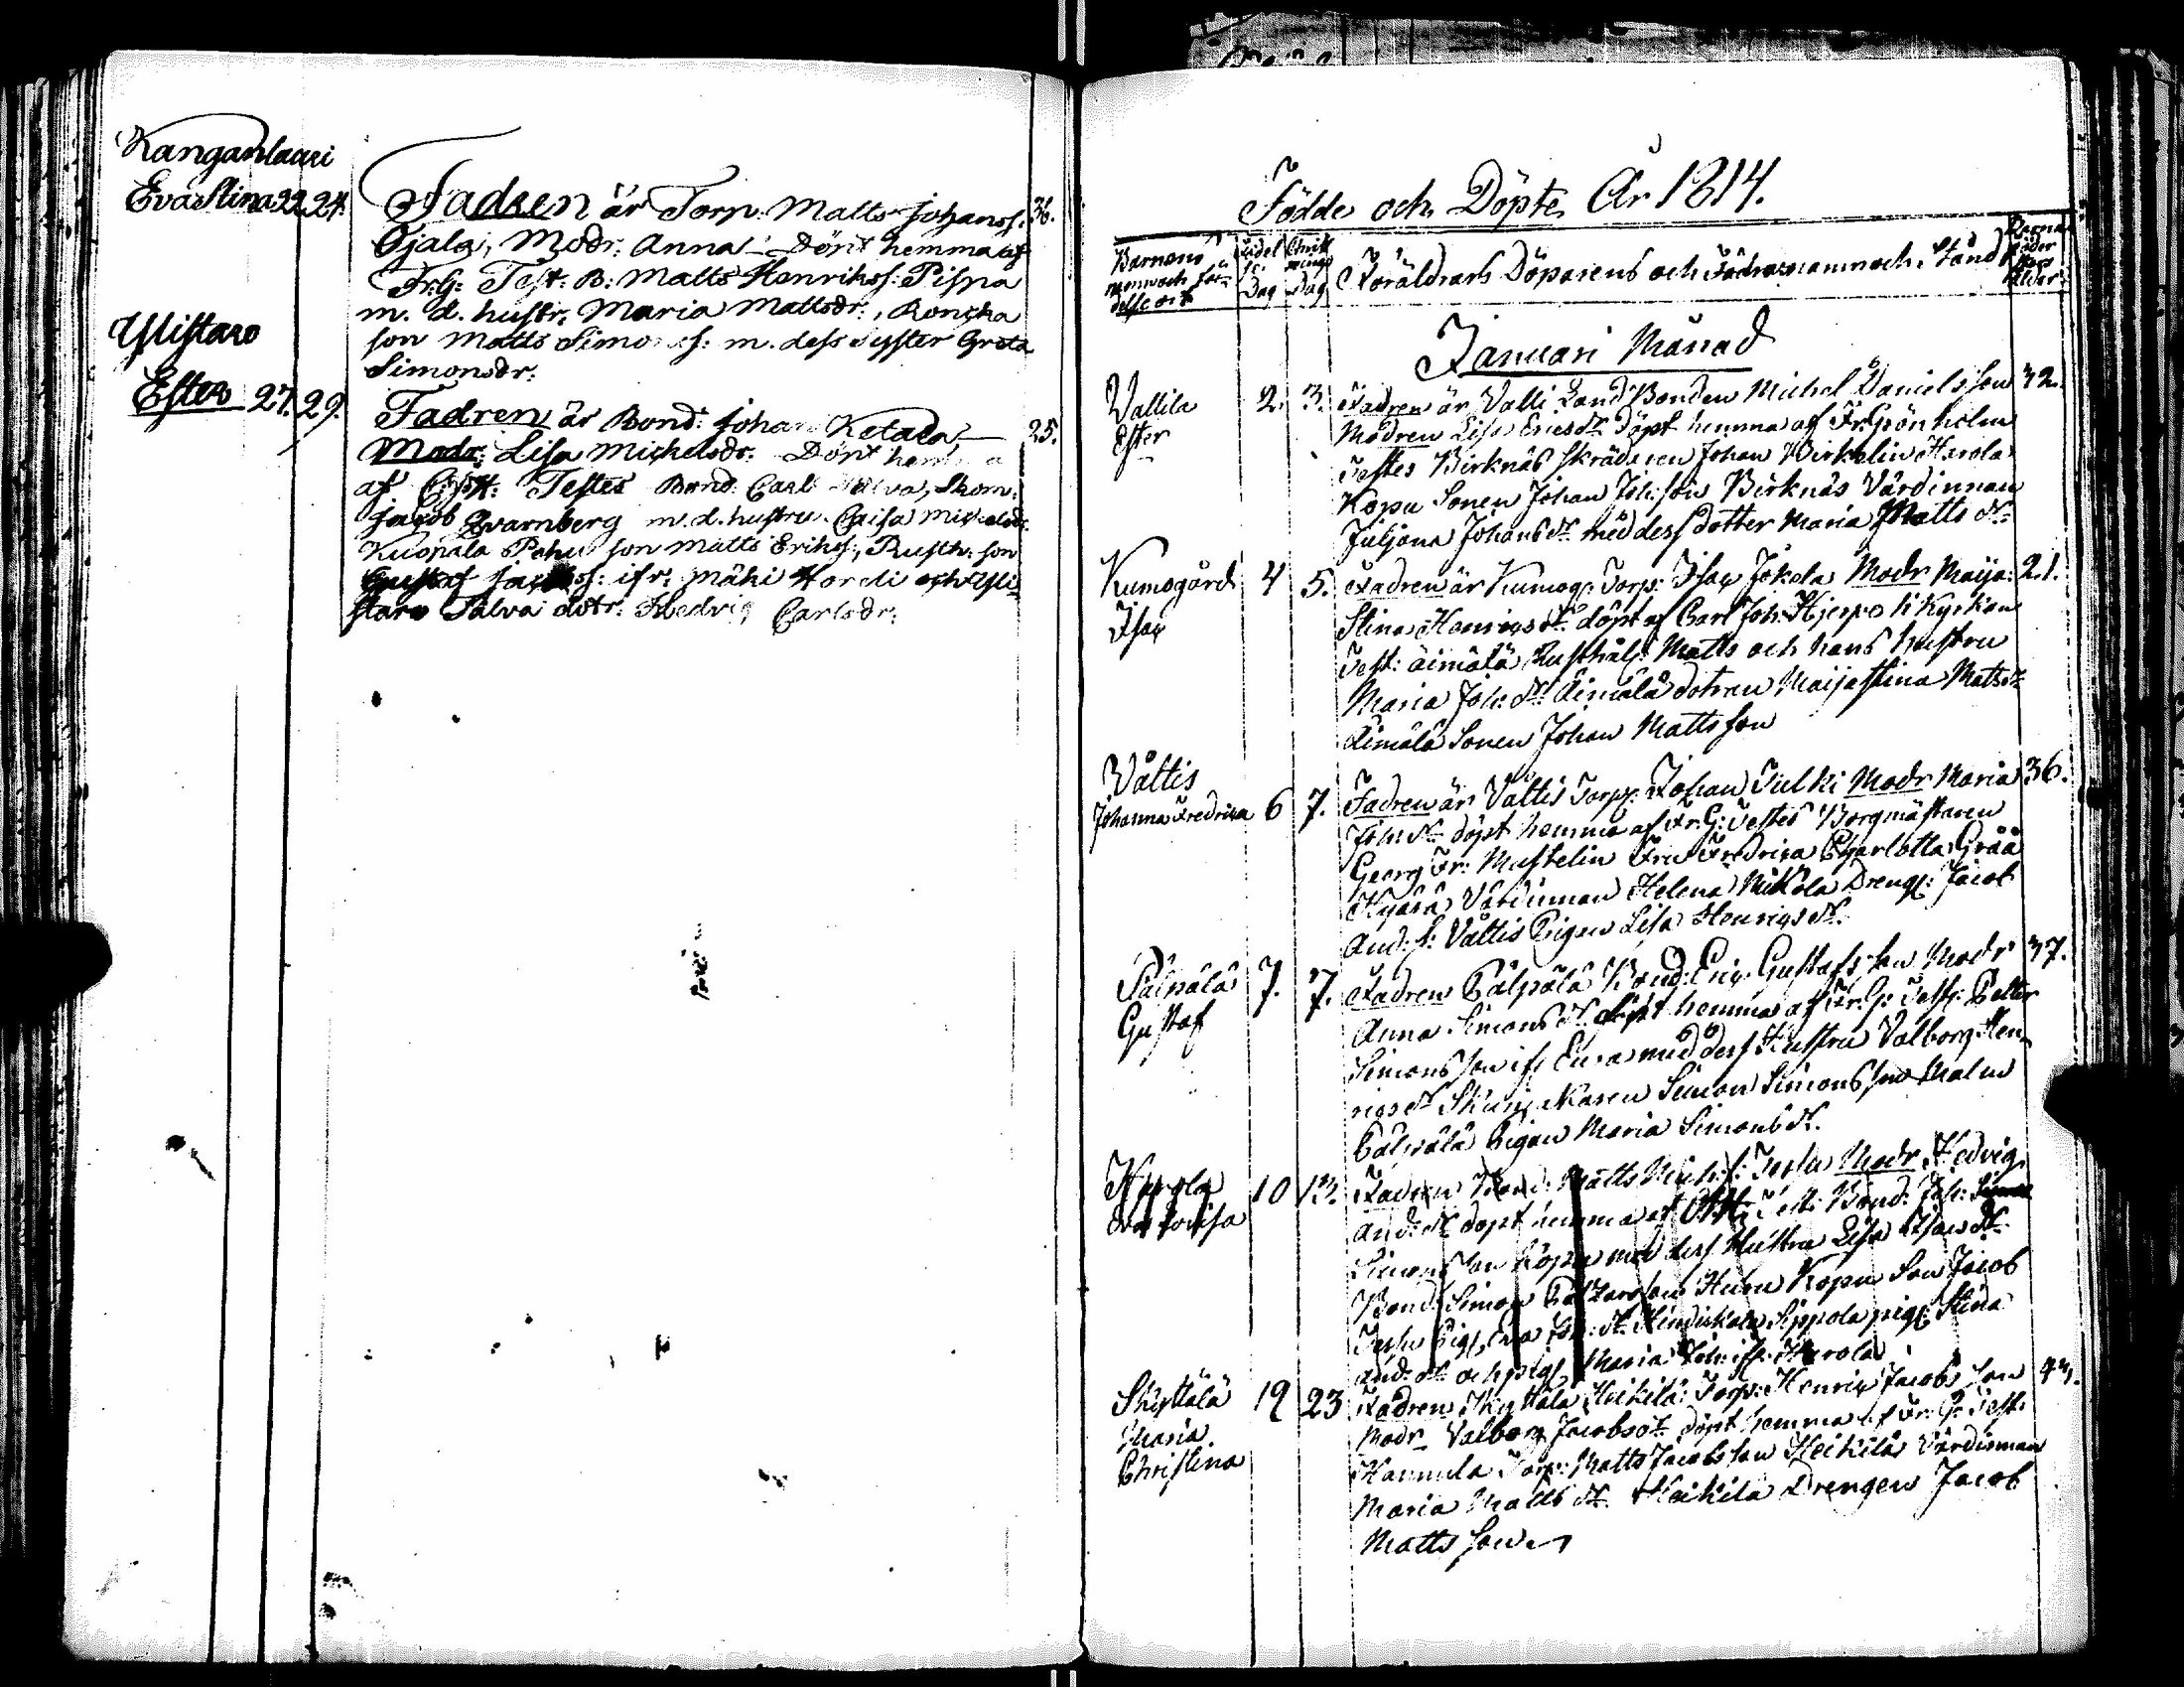 Kanganlaari
Eva Stina 22. 24. Fadren är Torp. Matts Johanss. 36.
Ojala, Modr. Anna — Döpt hemma af
Fr. G: Test: B: Matts Henrikss: Pispa
m. d. hustr: Maria Mattsdr:, Roncka
son Matts Simonss: m. dess syster Greta
Simonsdr:
Ylistaro
Ester 27. 29. Fadren är Bond: Johan Ketala, — 25.
Modr: Lisa Michelsdr: Döpt hemma
af Testes Bond. Carl Salva, Skom:
Jacob Qvarnberg m. d. hustru Caisa Michelsdr.
Kuopala son Matts Erikss:, Rusth: son
Gustaf ifr: Mähi och Yli-
staro Salva dotr. Hedvig Carlsdr:
Födde och Döpte År 1814.
Barnens namn och födelse ort
Födel se Dag
Christ nings Dag
Föräldrars Döparens och Faddrars namn och Stånd
Barna Moder Ålder
Januari Månad
Vallila 2. 3. Fadren är Valli Land Bonden Michel Daniels son 32.
Ester Modren Lisa Ericsdr döpt hemma af Fr. Grönholm
Testes Birknäs Skräddaren Johan Birkelin Harola
Kopu Sonen Johan Joh: son Birknäs Värdinnan
Juljana Johansdr med dess dotter Maria Mattsdr
Kumogård 4 5. Fadren är Kumog: Torp: Isac Jokela Modr Maija 21.
Isac Stina Henricsdr döpt af Carl Joh: Hjerpe i Kyrkan
Test: Äimälä Rusthål: Matts och hans hustru
Maria Joh: dr Äimälä dotren Maija Stina Matsdr
Äimälä Sonen Johan Matts son
Våltis
Johanna Fredrica 6 7. Fadren är Våltis Torp: Johan Tulki Modr Maria 36.
Joh: dr döpt hemma af Fr. G: Testes Borgmästaren
Georg Fr: Mustelin Fru Fredrica Charlotta Gråå
Värdinnan Helena Nikola Dreng: Jacob
And: s: Våltis Pigan Lisa Henricsdr.
Pälpälä 7. 7. Fadren Pälpälä Bond: Eric Gustafs son Modr 37.
Gustaf Anna Simonsdr döpt hemma af Fr. G: Test: Petter
Simons son ifr Eura med dess Hustru Valborg Hen-
ricsdr Simon Simons son Malm
Pälpälä Pigan Maria Simonsdr.
10 13. Fadren Bond: Matts Mich: s: Modr Hedvig
Lovisa And: dr döpt hemma af Test: Bond: Joh:
Simons son Kopu med dess Hustru Lisa Isacsdr
Bond: Simon Huru Kopu Son Jacob
Pig: Eva Sippola pig: Stina
And: dr och pig: Maria Joh: ifr Harola
Skyttälä 19 23 Fadren Skyttälä Heikilä Torp: Henric Jacobs son 43.
Maria Modr Valborg Jacobsdr döpt hemma af Fr. G: Test:
Christina Hannula Torp: Matts Jacobs son Heikilä Värdinnan
Maria Mattsdr Heikilä Drengen Jacob
Matts son